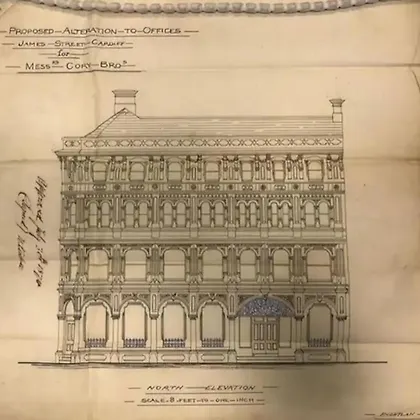 PROPOSED ALTERATION TO OFFICES
JAMES STREET CARDIFF
for
MESSRS CORY BROS
NORTH ELEVATION
SCALE 8 FEET TO ONE INCH